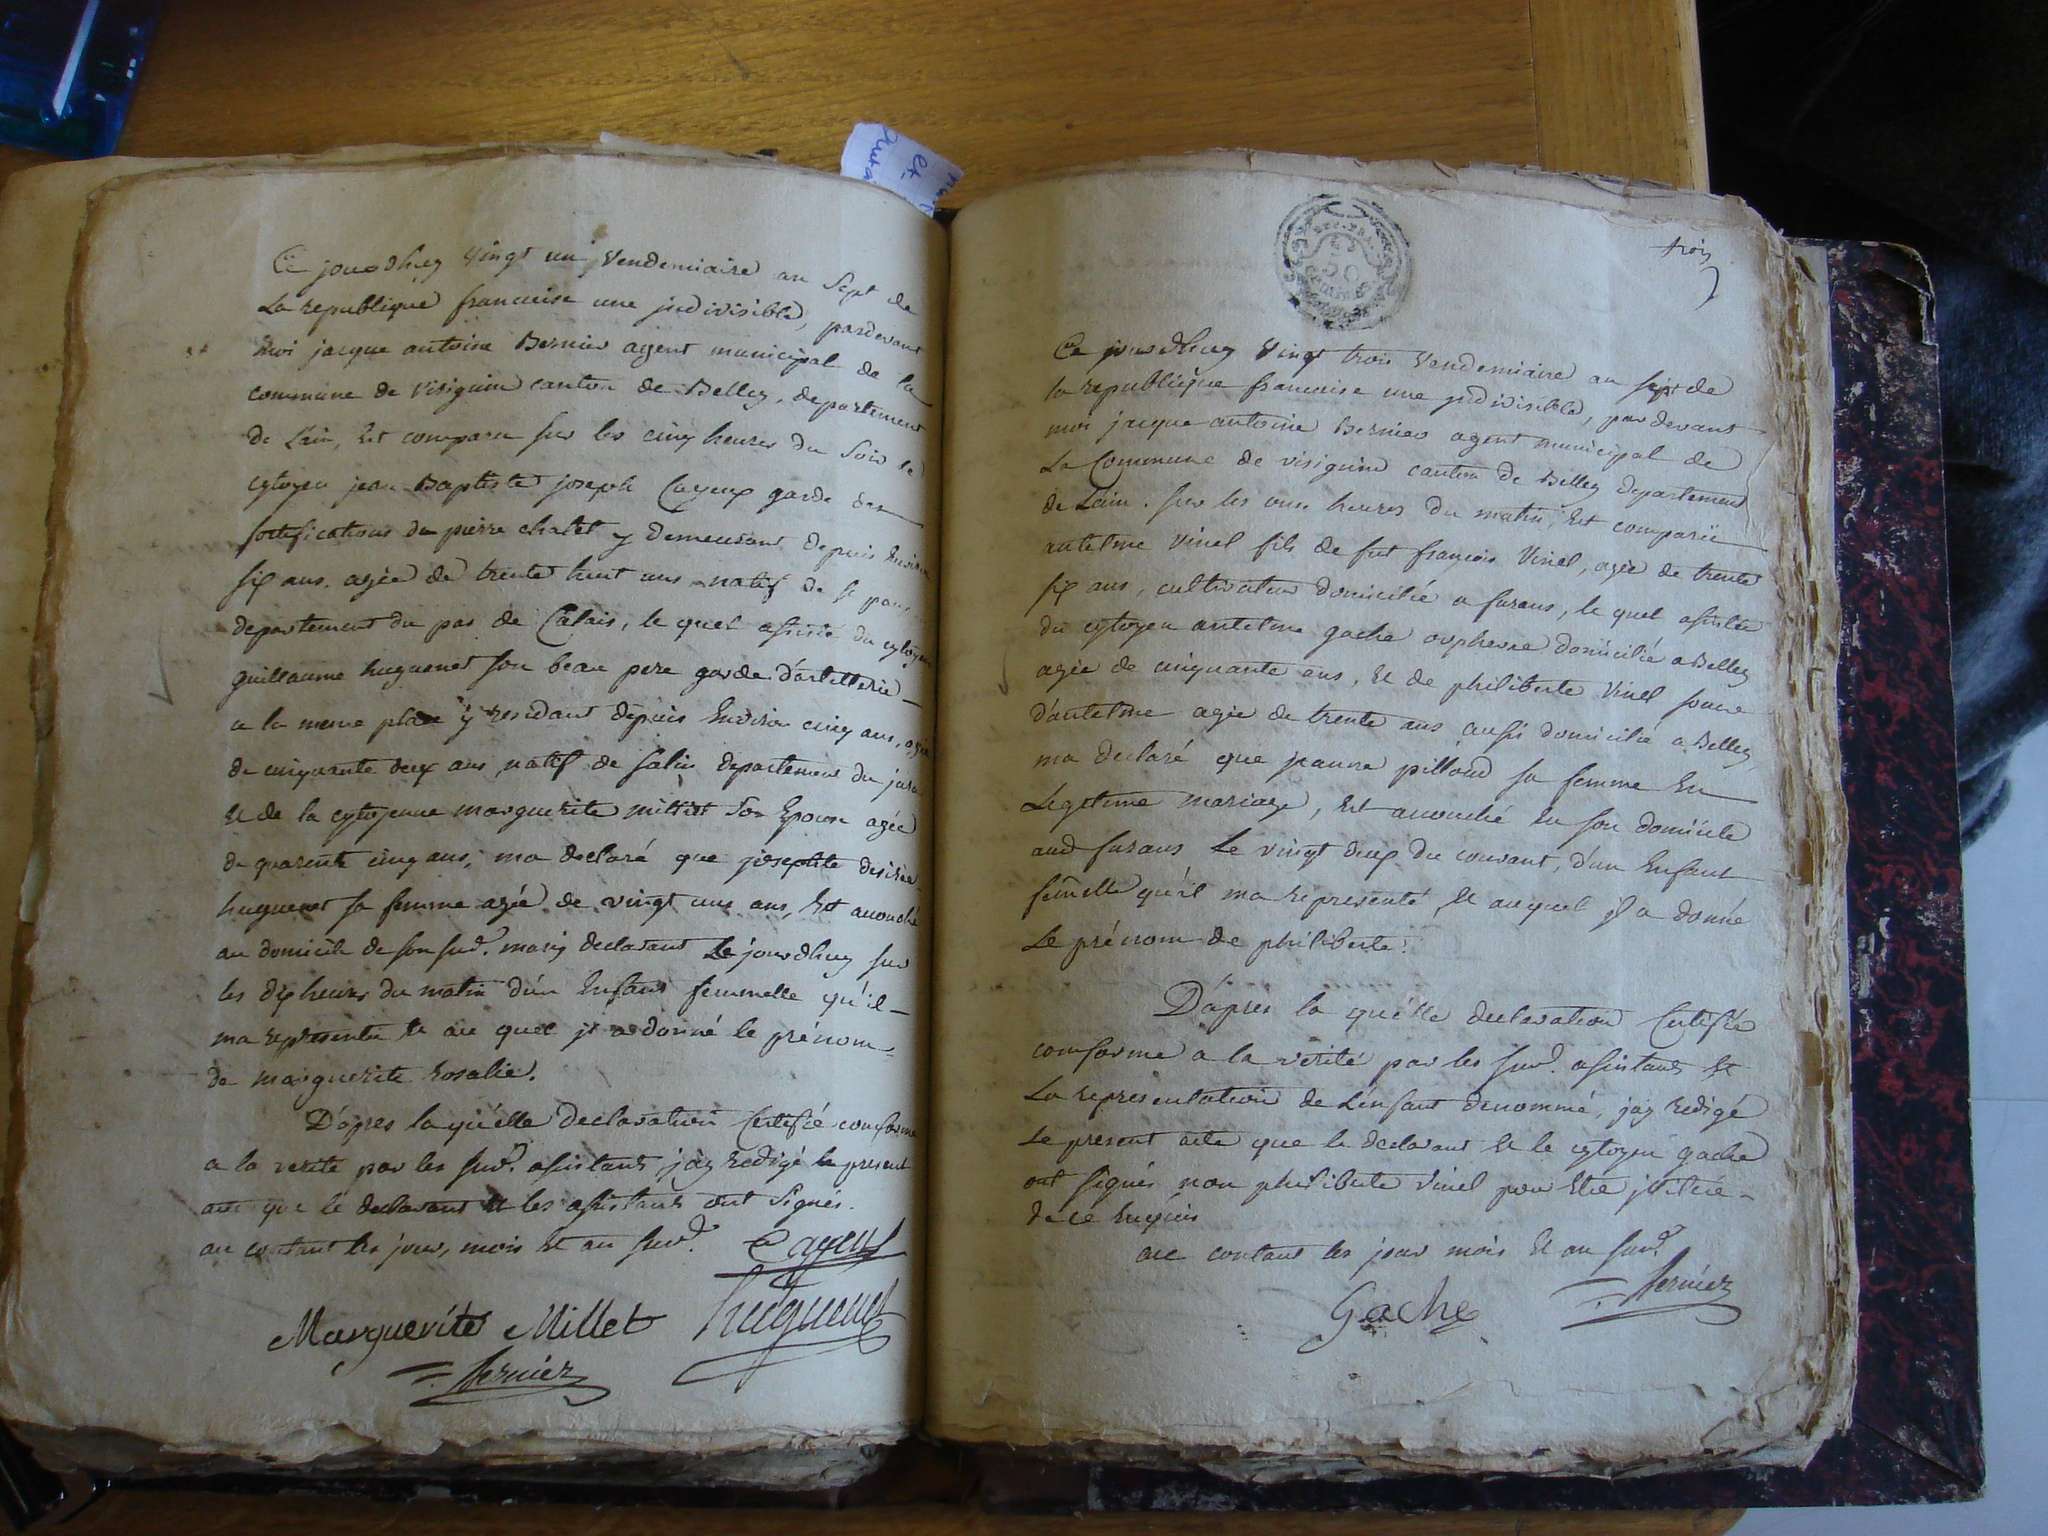 Ce jourdhuy vingt un vendemiaire an sept de
La republique francaise une indivisible, pardevant
moi jacque antoine Bernier agent municipal de la
commune de visignin canton de Belley, departement
de L'ain, Est comparu sur les cinq heures du soir le
cytoyen jean Baptiste joseph Cayeux garde des
fortifications de pierre chatel y demeurant depuis Environ
six ans, agée de trente huit ans natif de St
departement du pas de Calais, le quel assisté du cytoyen
guillaume huguenet son beau pere garde d'artillerie
a la meme place y residant depuis Environ cinq ans, agée
de cinquante deux ans natif de salin departement du jura
Et de la cytoyenne marguerite millet son Epouse agée
de quarente cinq ans, ma declaré que josephte desirée
huguenet sa femme agée de vingt uns ans, Est accouché
au domicile de son sud. mary declarant Le jourdhuy sur
les dix heures du matin d'un Enfant femmelle qu'il
ma representé Et au quel il a donné le prénom
de marguerite rosalie.
D'apres la qu'elle declaration Certifié conforme
a la verité par les sud. assistants j'ay redigé le present
acte que le declarant Et les assistants ont signés.
au contant les jour, mois Et an sud. Cayeux
Marguerite Millet huguenet
Bernier
et
50
trois
Ce jourdhuy vingt trois vendemiaire an sept de
la republique francaise une indivisible, pardevant
moi jacque antoine Bernier agent municipal de
La Commune de visignin canton de Belley departement
de Lain. sur les onze heures du matin, Est comparu
antelme vinel fils de fut françois vinel, agée de trente
six ans, cultivateur domicilié a furans, le quel assistée
du cytoyen antelme gache orphevre domicilié a Belley
agée de cinquante ans, Et de philiberte vinel soeur
d'antelme agée de trente ans aussi domicilié a Belley,
ma declaré que jeanne pilloud sa femme En
Legitime mariage, Est accouché En son domicile
aud furans Le vingt deux du courant, d'un Enfant
femelle qu'il ma representé, Et auquel il a donné
Le prénom de philiberte.
D'apres la qu'elle declaration Certifié
conforme a la verité par les sud. assistants Et
La representation de L'enfant denommé, jay redigé
Le present acte que le declarant Et le cytoyen gache
ont signés non philiberte vinel pour Etre
de ce Enquis
au contant les jour mois Et an sud.
Gache Bernier